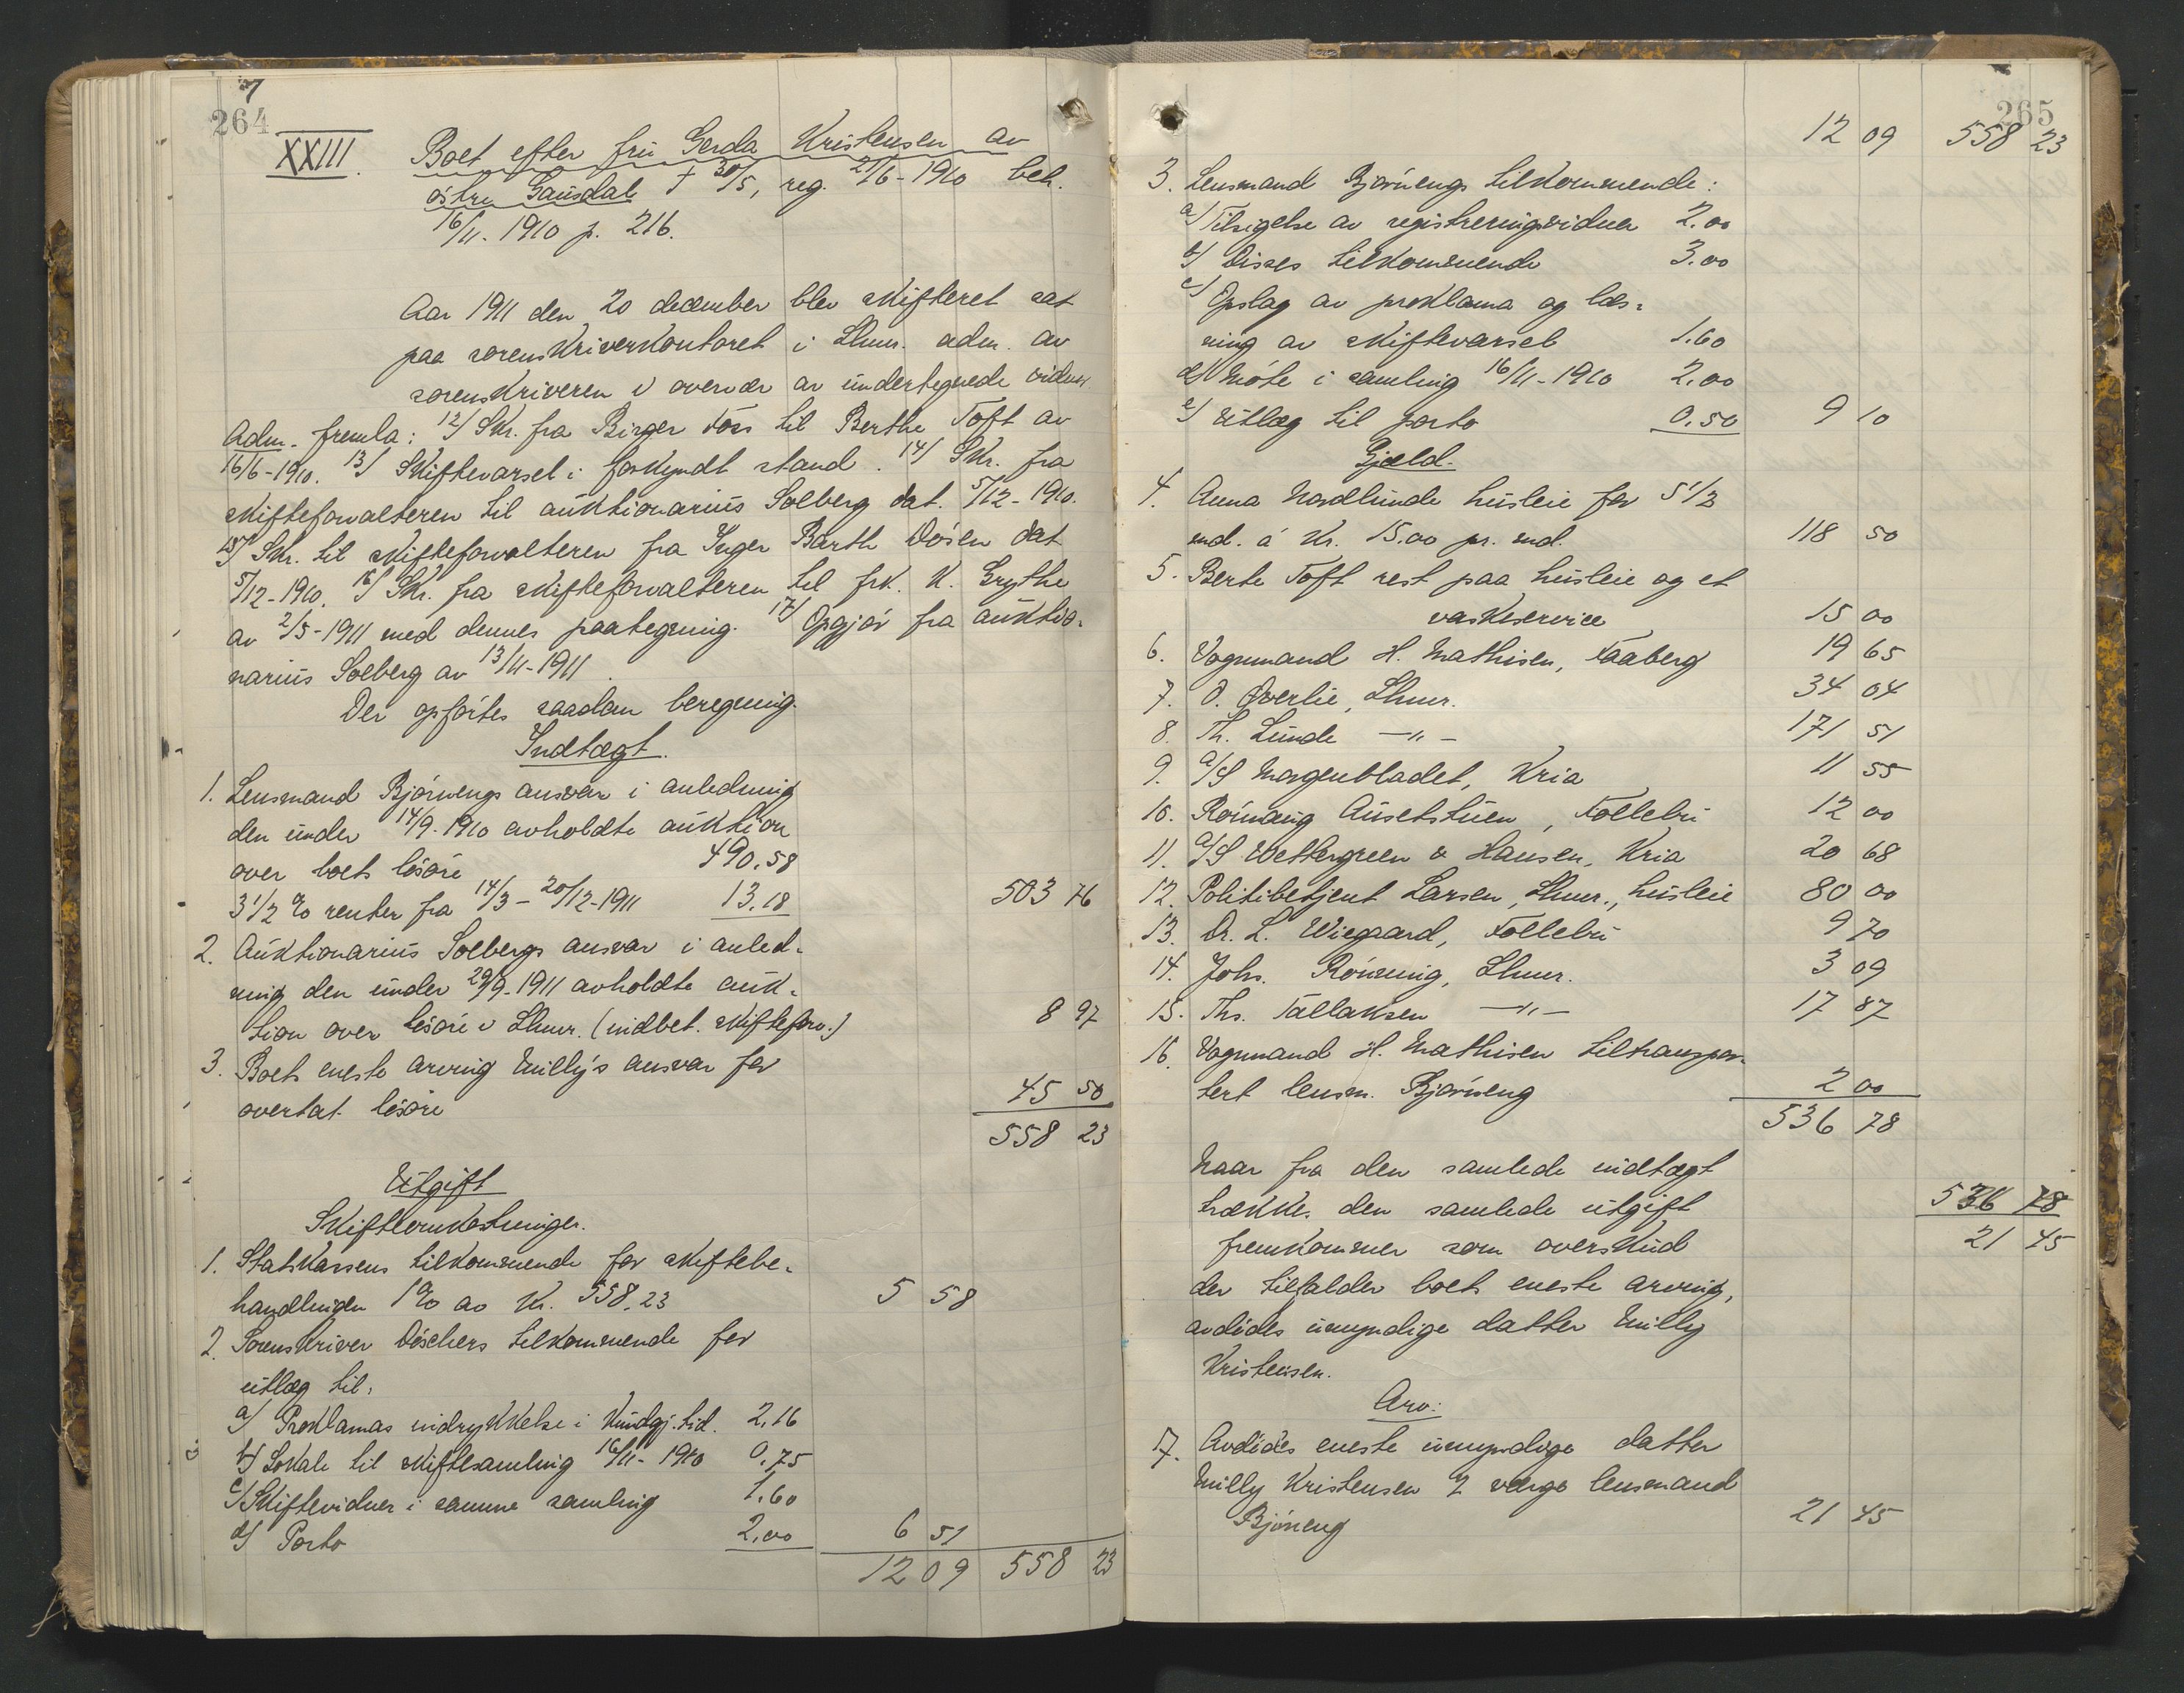 7
264
XXIII. Boet efter fru Gerda Kristensen av
østre Gausdal † 30/5, reg. 21/6-1910 beh.
16/11-1910 p. 216.
Aar 1911 den 20 december blev skifteret sat
paa sorenskriverkontoret i Lhmr. adm. av
sorenskriveren i overvær av undertegnede vidner.
Adm. fremla: 12/ Skr. fra Birger Foss til Berthe Toft av
16/6-1910. 13/ Skiftevarsel i forkyndt stand. 14/ Skr. fra
skifteforvalteren til auktionarius Solberg dat. 5/12-1910.
15/ Skr. til skifteforvalteren fra Inger Barth Døsen dat
5/12-1910. 16/ Skr. fra skifteforvalteren til frk. K. Grythe
av 2/5-1911 med dennes paategning. 17/ Opgjør fra auktio-
narius Solberg av 13/11-1911.
Der opførtes saadan beregning.
Indtægt.
1. Lensmand Bjørnengs ansvar i anledning
den under 14/9-1910 avholdte auktion
over boets løsøre 490.58
3 1/2 % renter fra 14/3 - 20/12-1911 13.18 503 76
2. Auktionarius Solbergs ansvar i anled-
ning den under 29/9-1911 avholdte auk-
tion over løsøre i Lhmr. (indbet. skifteforv.) 8 97
3. Boets eneste arving Milly's ansvar for
overtat løsøre 45 50
558 23
Utgift
Skifteomkostninger.
1. Statskassens tilkommende for skiftebe-
handlingen 1% av Kr. 558.23 5 58
2. Sorenskriver Döschers tilkommende for
utlæg til:
a/ Proklamas indrykkelse i Kundgj.tid. 2.16
b/ Lokale til skiftesamling 16/11-1910 0.75
c/ Skiftevidner i samme samling 1.60
d/ Porto 2.00 6 51
12 09 558 23
265
12 09 558 23
3. Lensmand Bjørnengs tilkommende:
a/ Tilsigelse av registreringsvidner 2.00
b/ Disses tilkommende 3.00
c/ Opslag av proklama og læs-
ning av skiftevarsel 1.60
d/ Møte i samling 16/11-1910 2.00
e/ Utlæg til porto 0.50 9 10
Gjæld.
4. Anna Nordlunde husleie for 5 1/2
md. á Kr. 15.00 pr. md. 118 50
5. Berte Toft rest paa husleie og et
vaskeservice 15 00
6. Vognmand H. Mathisen, Faaberg 19 65
7. O. Øverlie, Lhmr. 34 04
8. Th. Lunde -"- 171 51
9. A/S Morgenbladet, Kria 11 55
10. Rønnaug Ausetstuen, Follebu 12 00
11. A/S Wettergreen & Hansen, Kria 20 68
12. Politibetjent Larsen, Lhmr., husleie 80 00
13. Dr. L. Wiegaard, Follebu 9 70
14. Johs. Rønning, Lhmr. 3 09
15. Ths. Tallaksen -"- 17 87
16. Vognmand H. Mathisen tiltranspor-
tert lensm. Bjørneng 2 00
536 78
Naar fra den samlede indtægt
trækkes den samlede utgift 536 78
fremkommer som overskud 21 45
der tilfalder boets eneste arving,
avdødes umyndige datter Milly
Kristensen.
Arv:
17. Avdødes eneste umyndige datter
Milly Kristensen v/ verge lensmand
Bjørneng 21 45